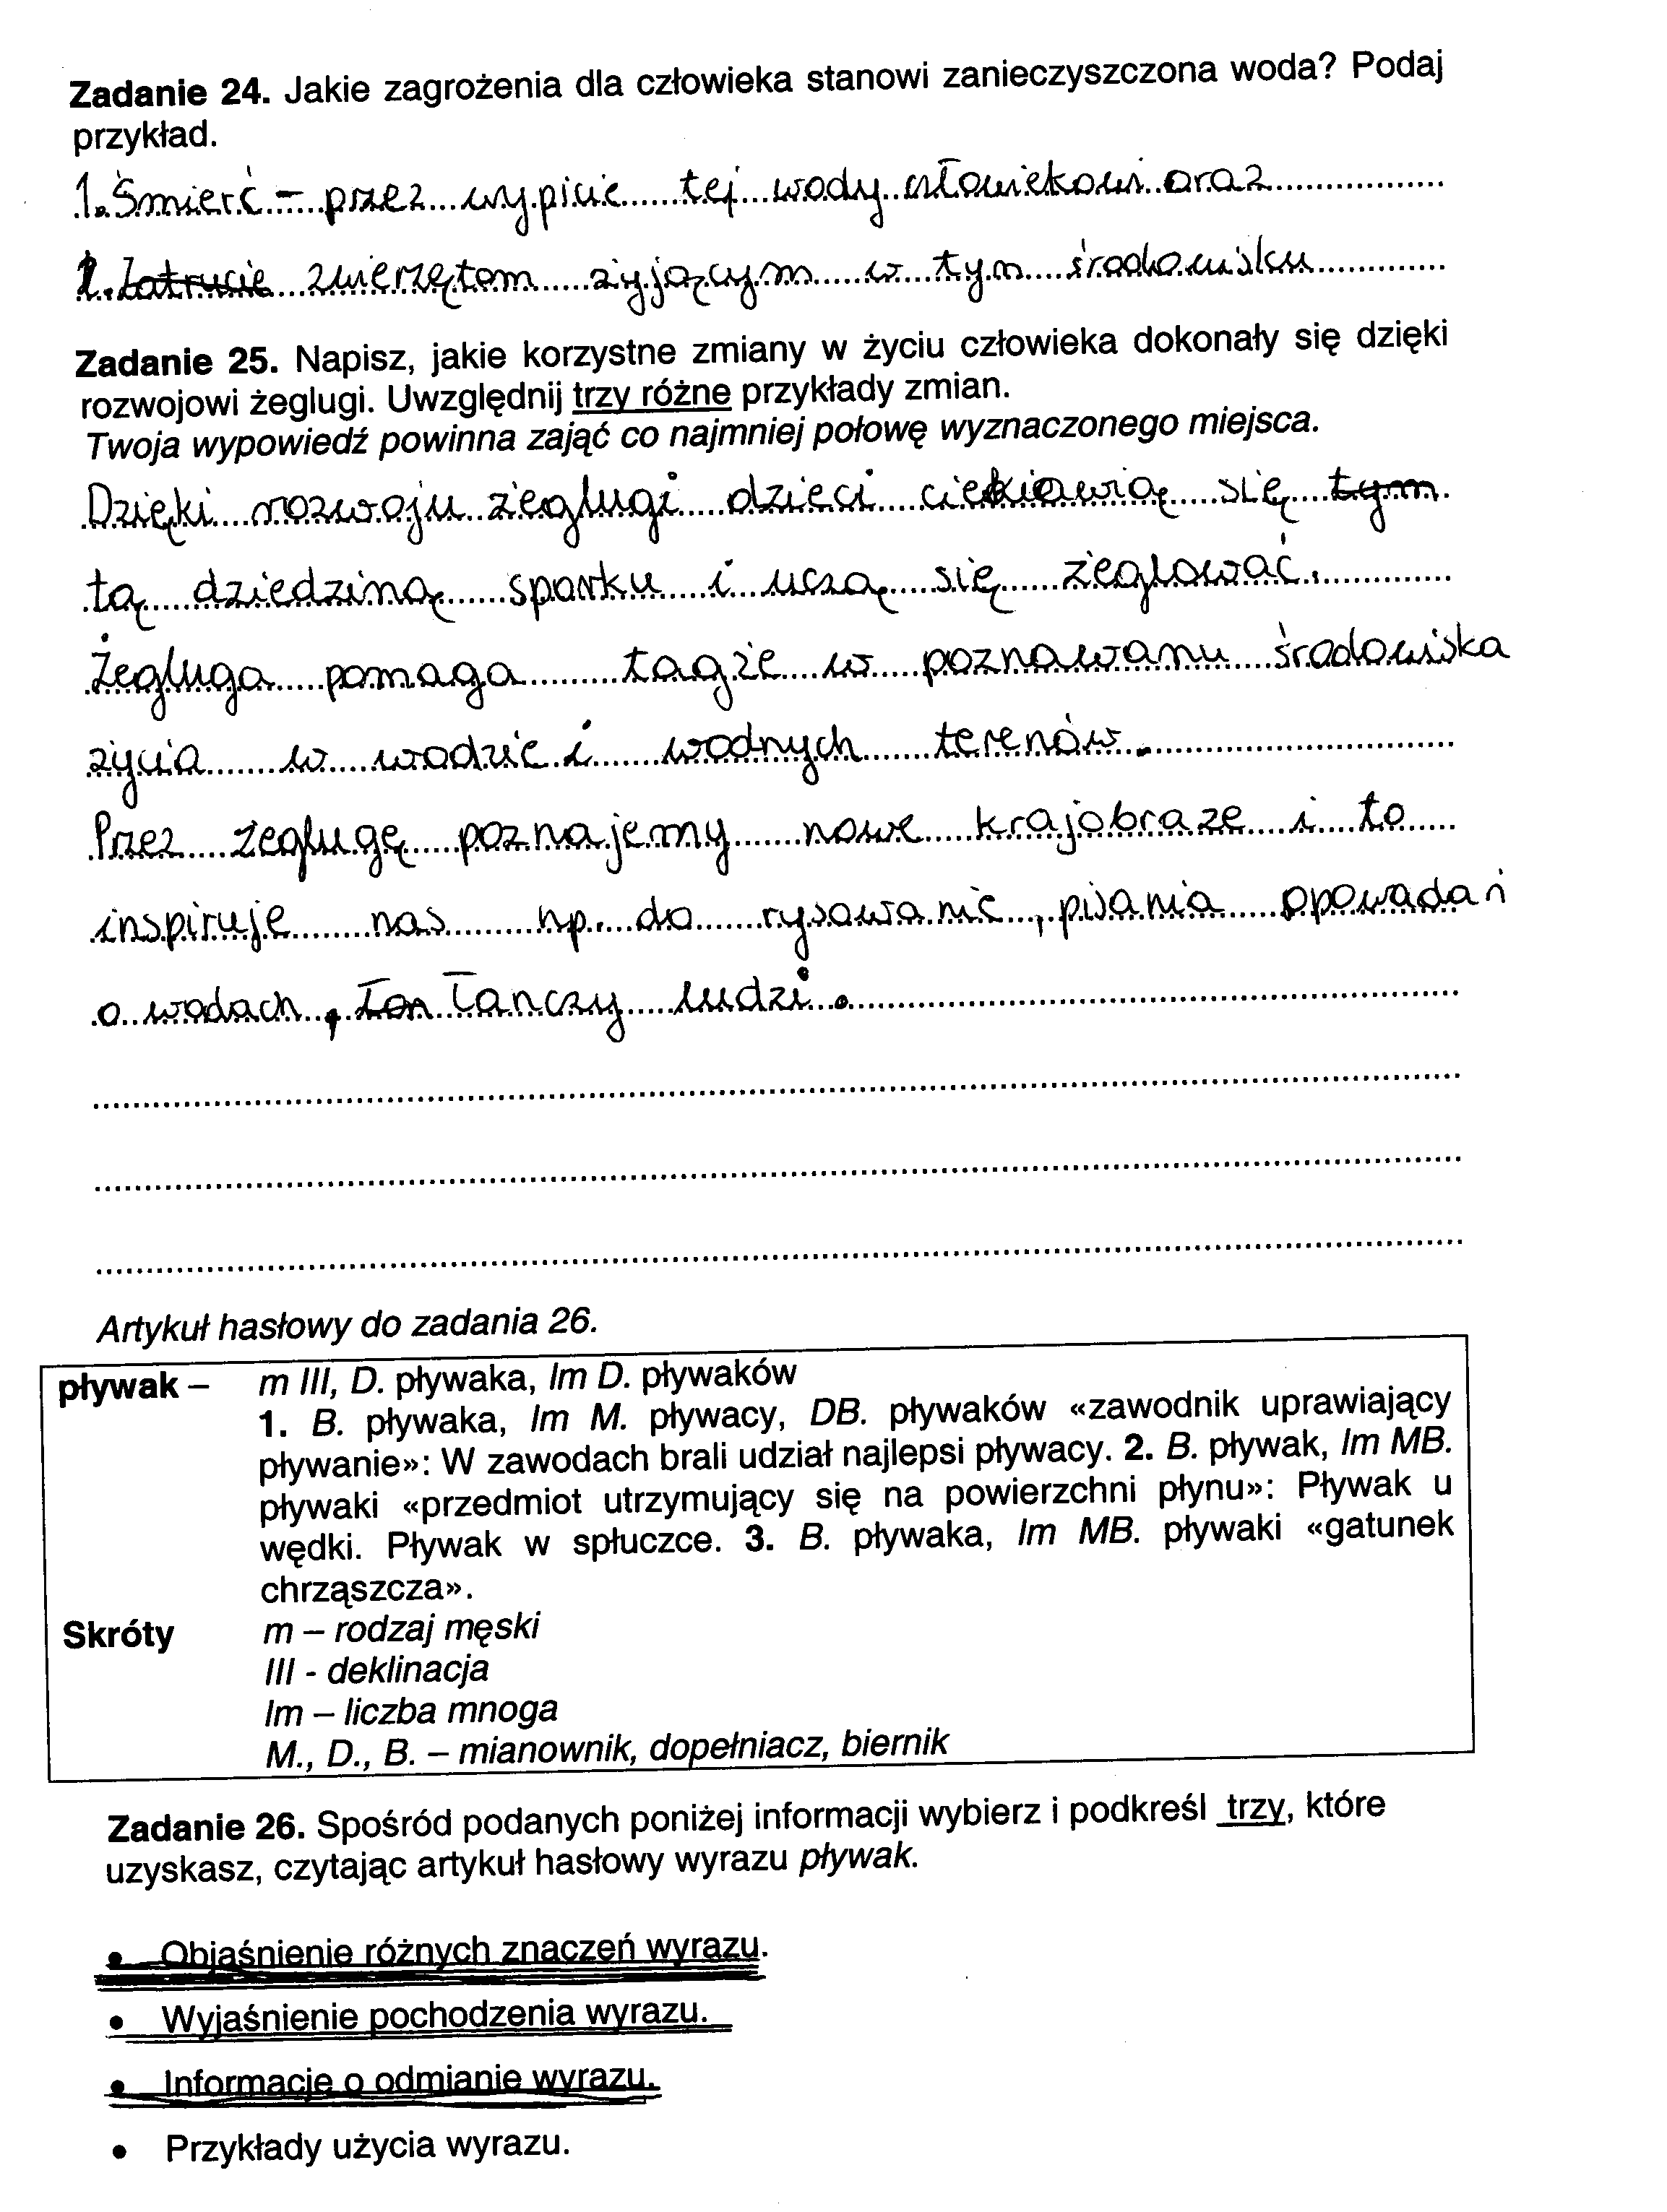 Zadanie 24. Jakie zagrożenia dla człowieka stanowi zanieczyszczona woda? Podaj
przykład.
1. Śmierć – przez wypicie tej wody człowiekowi oraz
2. Zatrucie zwierzętom żyjącym w tym środowisku
Zadanie 25. Napisz, jakie korzystne zmiany w życiu człowieka dokonały się dzięki
rozwojowi żeglugi. Uwzględnij trzy różne przykłady zmian.
Twoja wypowiedź powinna zająć co najmniej połowę wyznaczonego miejsca.
Dzięki rozwoju żeglugi dzieci ciekiawią się tym
tą dziedziną sportu i uczą się żeglować.
Żegluga pomaga tagże w poznawaniu środowiska
życia w wodzie i wodnych terenów.
Przez żeglugę poznajemy nowe krajobraze i to
inspiruje nas np. do rysowanie, pisania opowadań
o wodach, łon łanczy ludzi.
Artykuł hasłowy do zadania 26.
pływak – m III, D. pływaka, lm D. pływaków
1. B. pływaka, lm M. pływacy, DB. pływaków «zawodnik uprawiający
pływanie»: W zawodach brali udział najlepsi pływacy. 2. B. pływak, lm MB.
pływaki «przedmiot utrzymujący się na powierzchni płynu»: Pływak u
wędki. Pływak w spłuczce. 3. B. pływaka, lm MB. pływaki «gatunek
chrząszcza».
Skróty m – rodzaj męski
III - deklinacja
lm – liczba mnoga
M., D., B. – mianownik, dopełniacz, biernik
Zadanie 26. Spośród podanych poniżej informacji wybierz i podkreśl trzy, które
uzyskasz, czytając artykuł hasłowy wyrazu pływak.
• Objaśnienie różnych znaczeń wyrazu.
• Wyjaśnienie pochodzenia wyrazu.
• Informacje o odmianie wyrazu.
• Przykłady użycia wyrazu.